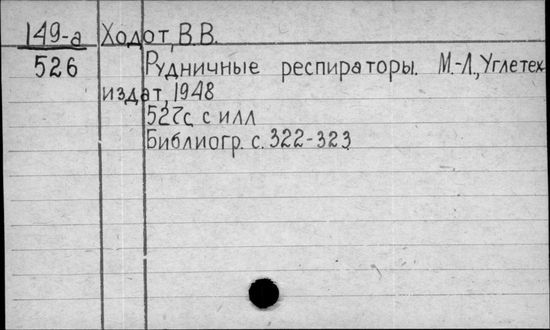 149-а Ходот, В.В.
526 Рудничные респираторы. М.-Л., Углетех
издат, 1948
527с. с илл
Библиогр. с. 322-323